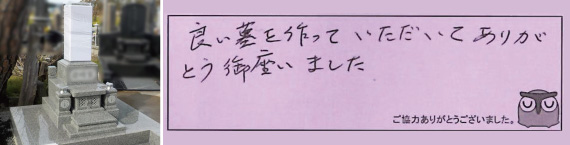 良い墓を作っていただいてありが
とう御座いました
ご協力ありがとうございました。